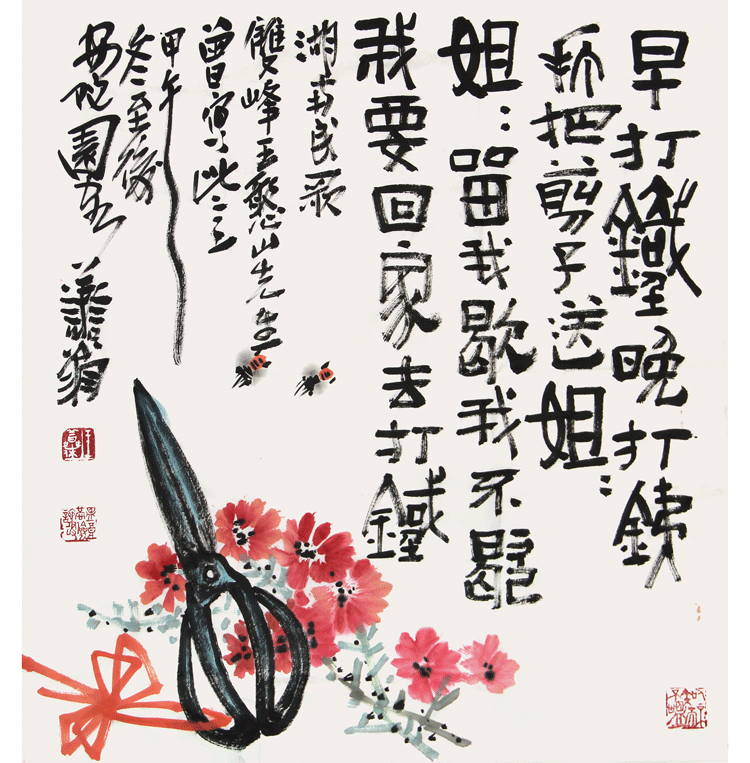 早打鐵晚打銕
打把剪子送姐:
姐:留我歇我不歇
我要回家去打鐵
湖南民歌
雙峰王憨山先生
曾寫此
甲午
冬至後